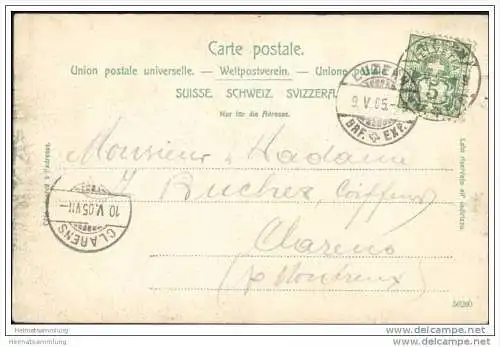 Carte postale.
Union postale universelle. — Weltpostverein. — Unione postale
SUISSE. SCHWEIZ. SVIZZERA.
Nur für die Adresse.
LUZERN
9.V.05.-
BRF. EXP.
5
Monsieur & Madame
J Buchex, Coiffeur
Clarens
(s/Montreux)
10.V.05.VII-
CLARENS
Côté réservé à l'adresse.
Lato riservato all'indirizzo
Heimatsammlung
Heimatsammlung